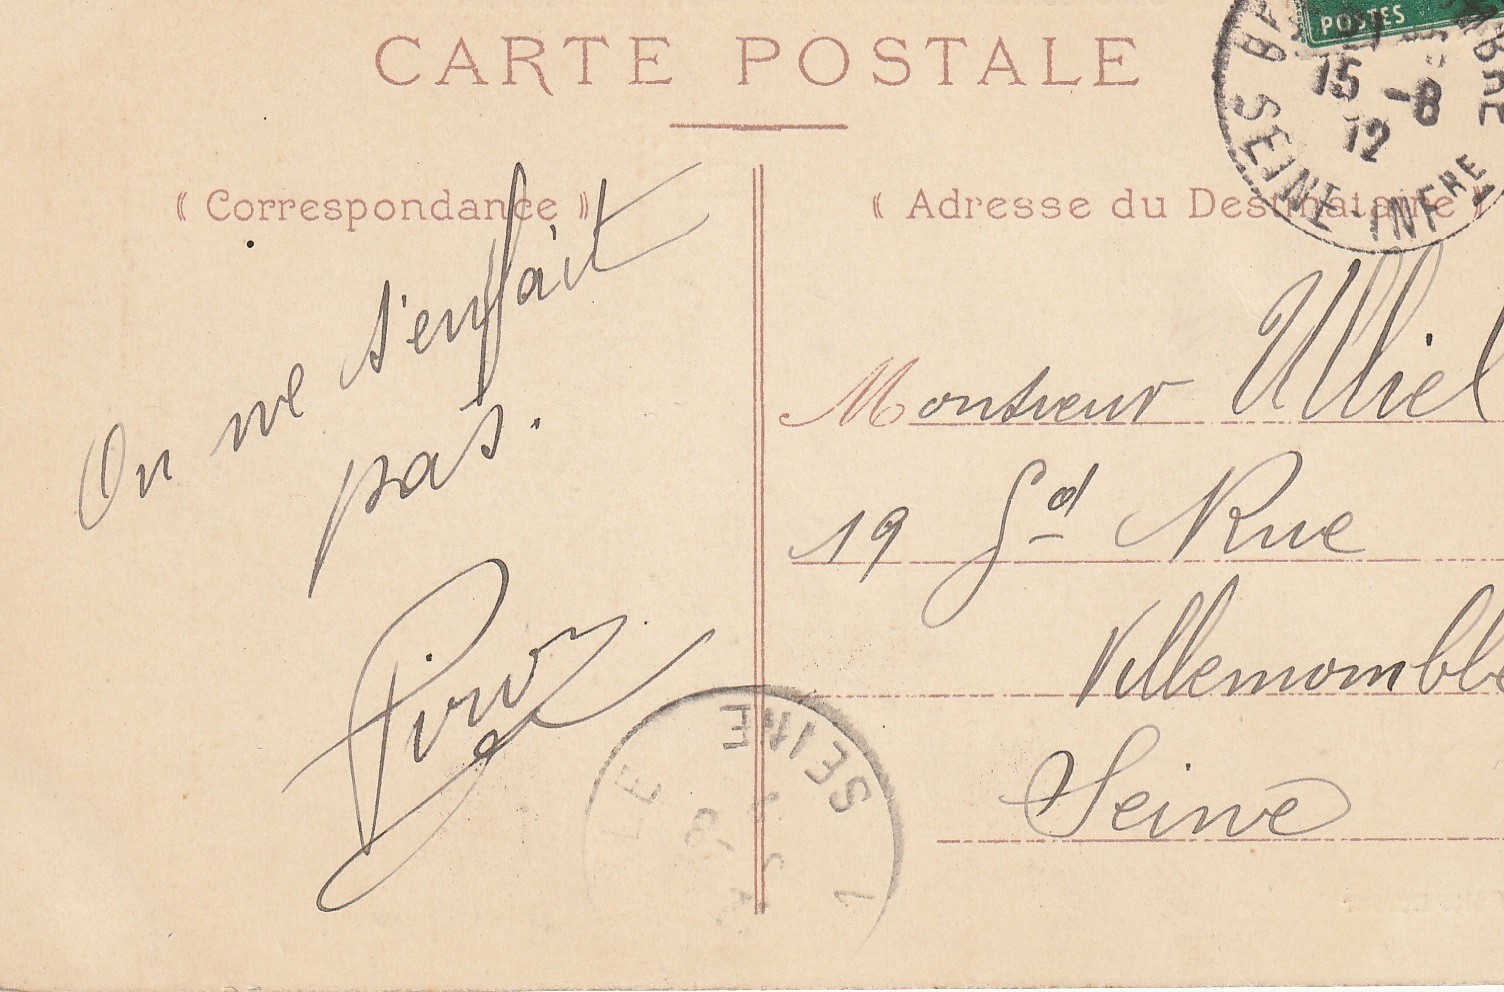 CARTE POSTALE
POSTES
15 -8
12
SEINE-INFRE
« Correspondance »
« Adresse du Destinataire »
On ne s'enfait
pas.
Monsieur Ulliel
19 Gd Rue
Villemomble
Seine
SEINE